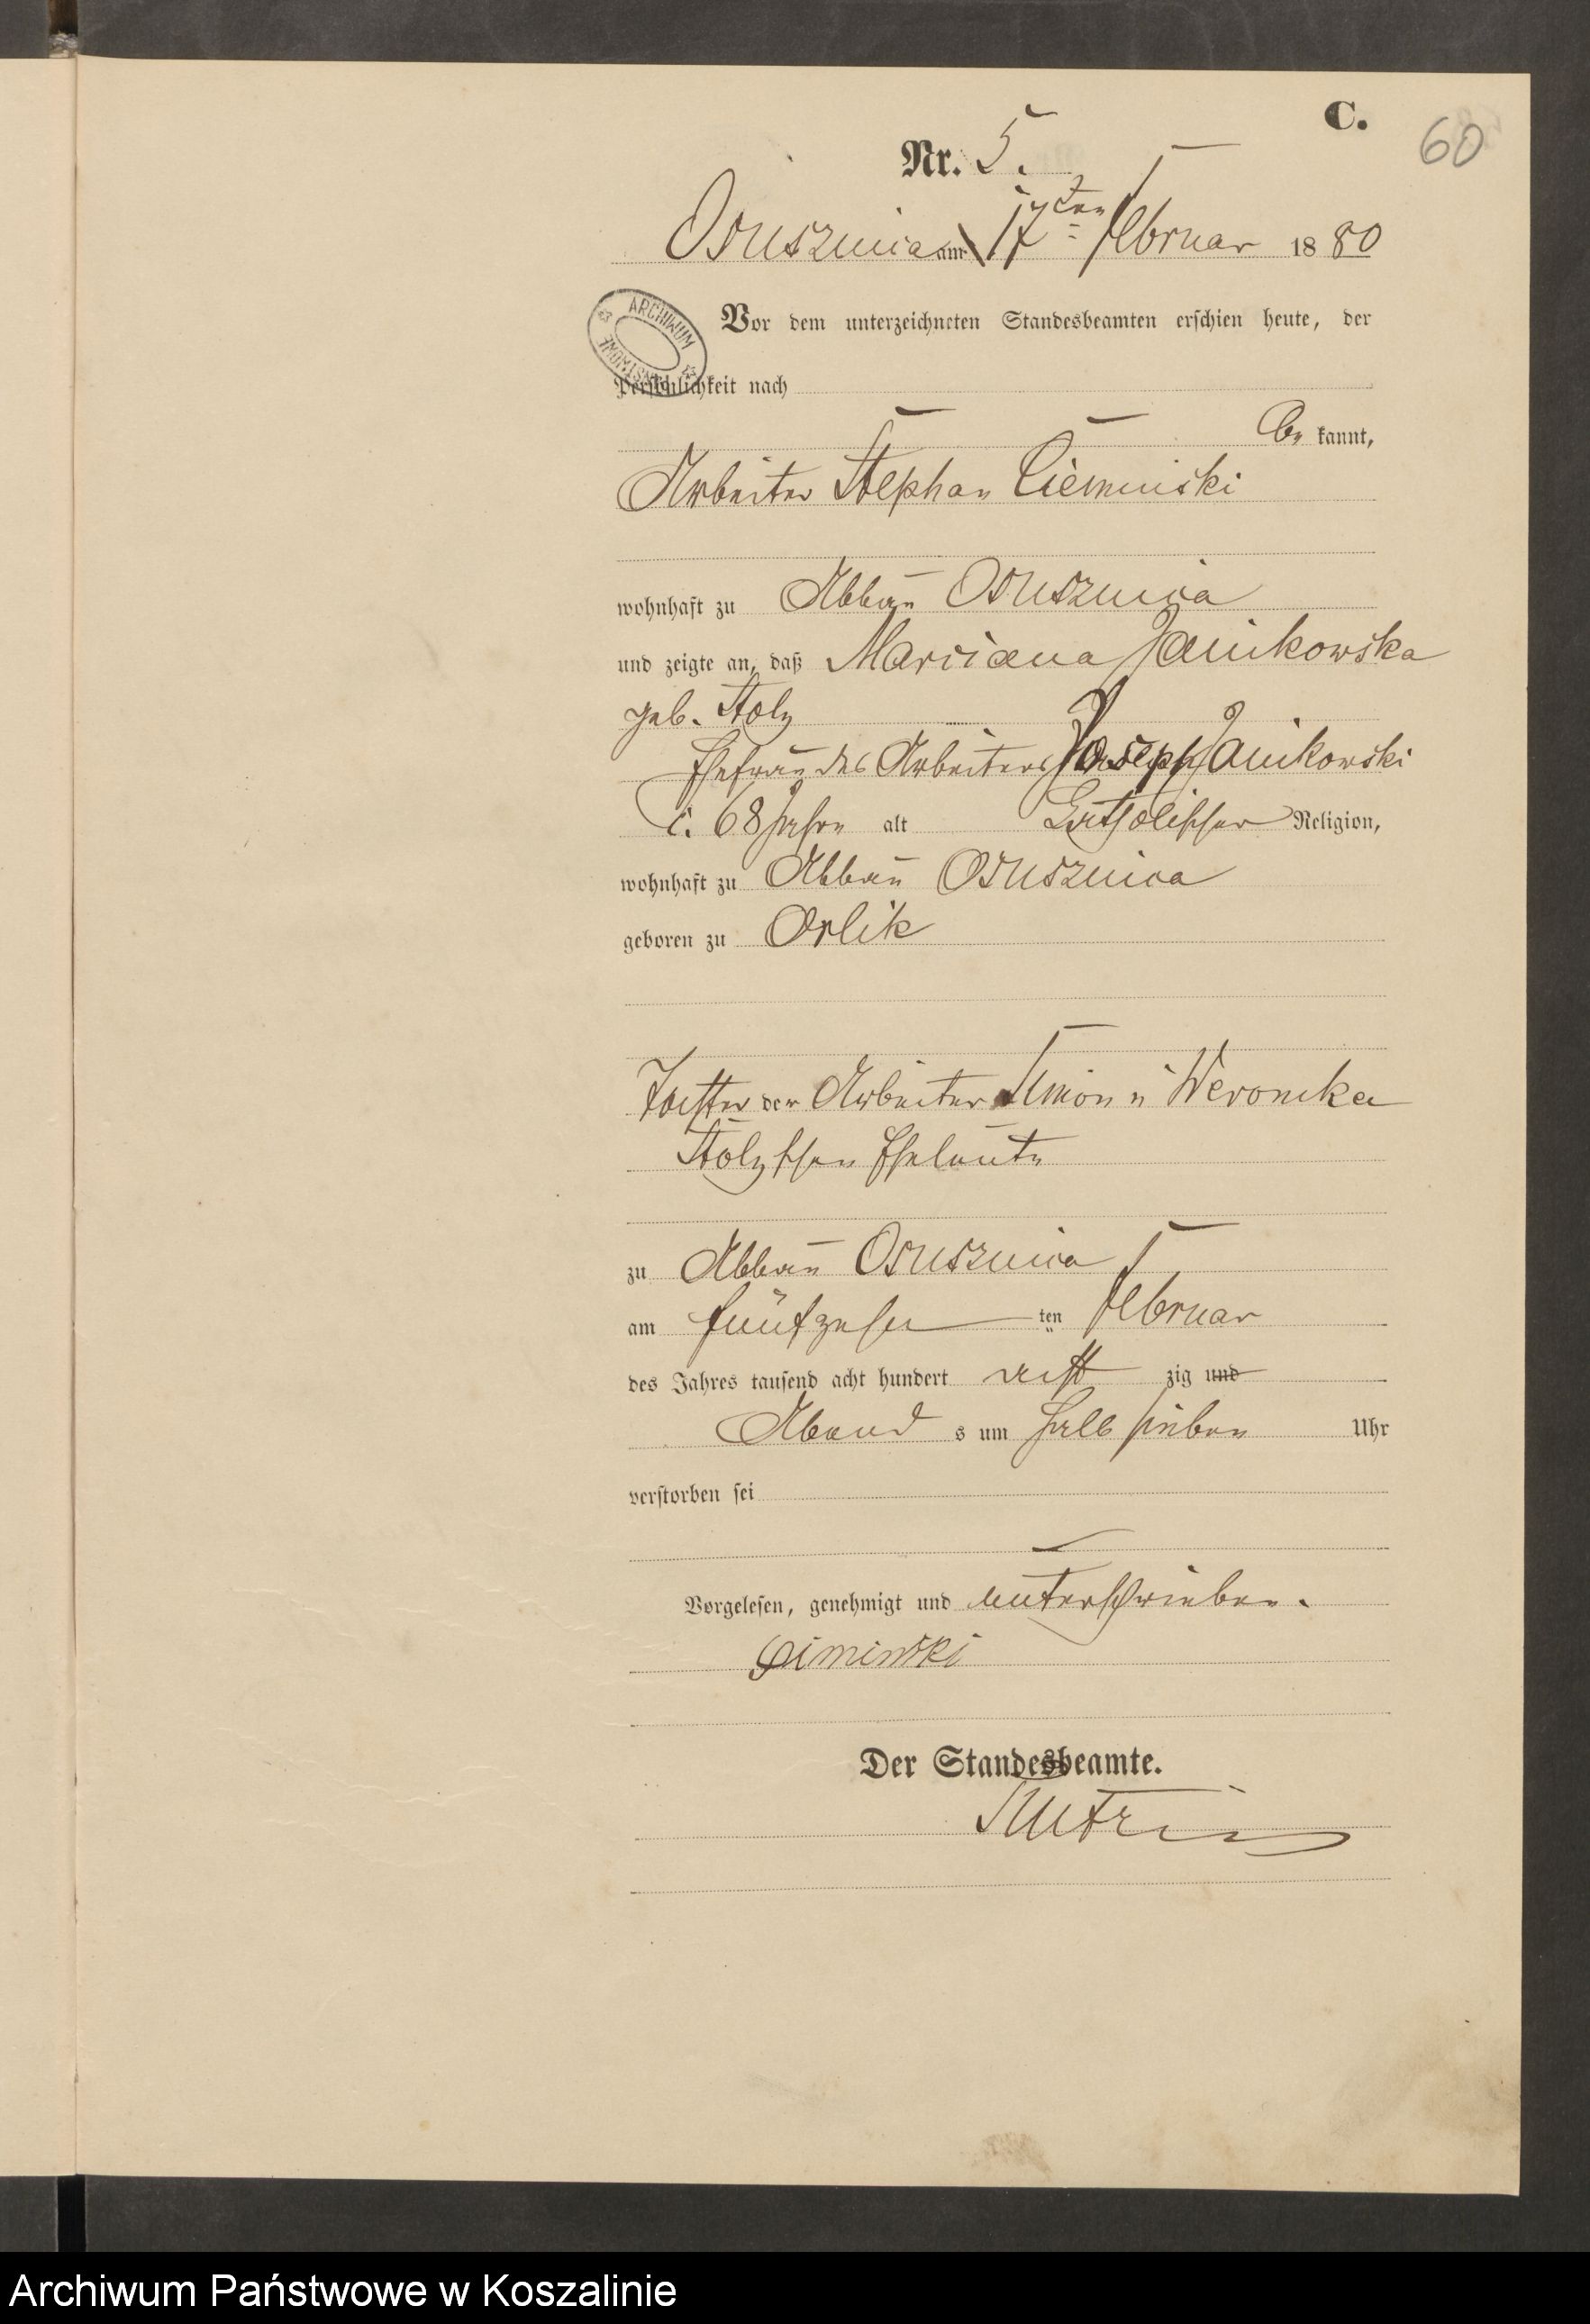 C.
60
Nr. 5.
Osusznica am 17ten Februar 1880
Vor dem unterzeichneten Standesbeamten erschien heute, der
ARCHIWUM
Persönlichkeit nach
be kannt,
Arbeiter Stephan Cieminski
wohnhaft zu Abbau Osusznica
und zeigte an, daß Marianna Janikowska
geb. Stolz
Ehefrau des Arbeiters Joseph Janikowski
c. 68 Jahre alt katholischer Religion,
wohnhaft zu Abbau Osusznica
geboren zu Orlik
Tochter der Arbeiter Simon u Weronika
Stolzschen Eheleute
zu Abbau Osusznica
am fünfzehn ten Februar
des Jahres tausend acht hundert acht zig und
Abend s um halb sieben Uhr
verstorben sei
Vorgelesen, genehmigt und unterschrieben.
Ciminski
Der Standesbeamte.
Archiwum Państwowe w Koszalinie